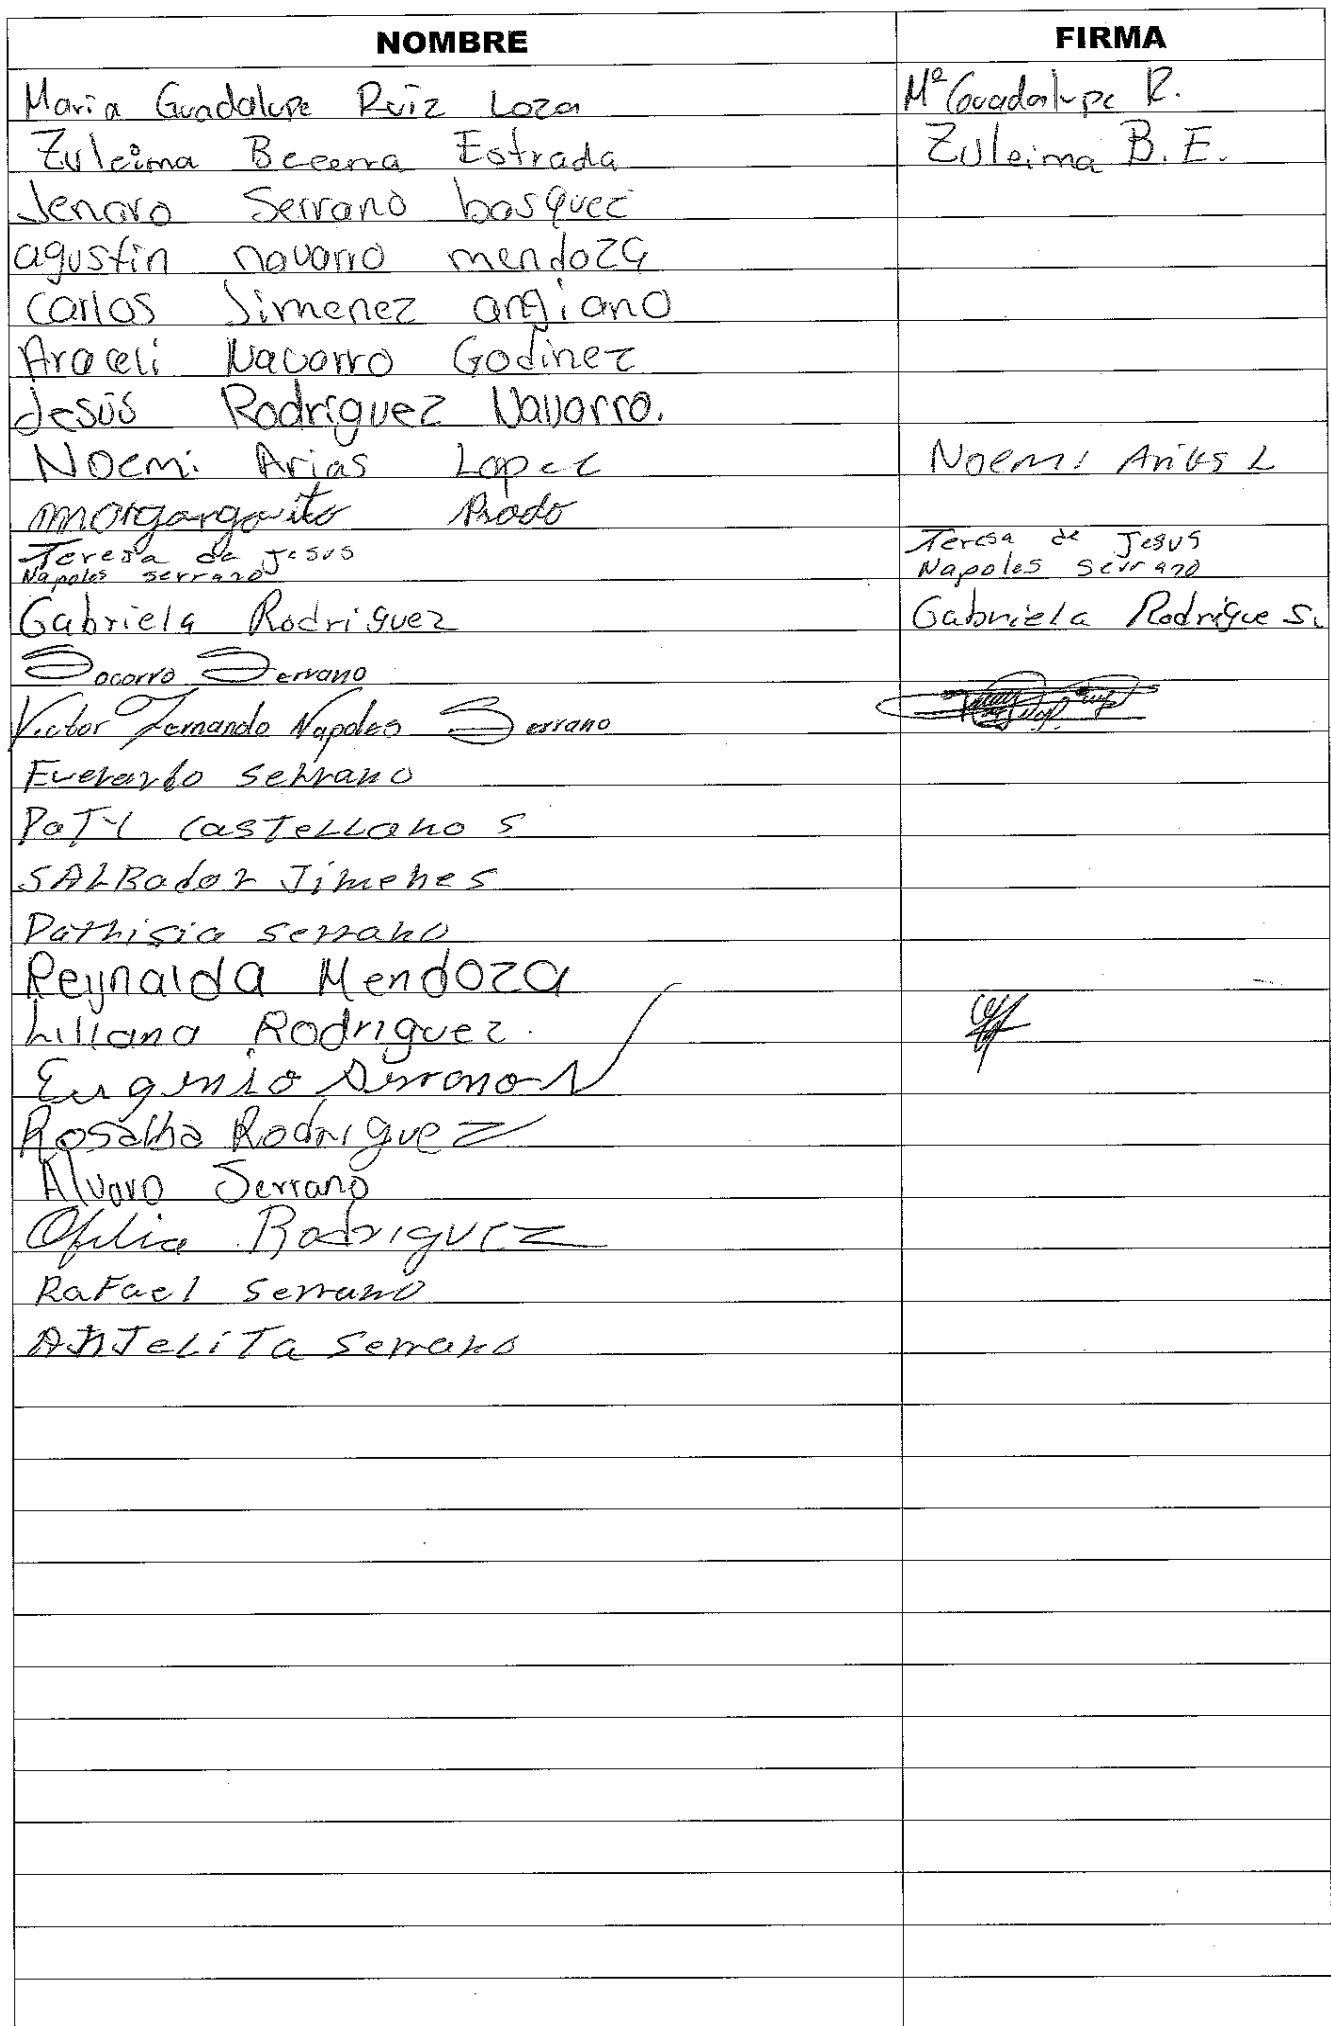 NOMBRE FIRMA
Maria Guadalupe Ruiz Loza Mª Guadalupe R.
Zuleima Becerra Estrada Zuleima B. E.
Jenaro Serrano basquez
agustin navarro mendoza
carlos Jimenez angiano
Araceli Navarro Godinez
Jesús Rodriguez Navarro.
Noemi Arias Lopez Noemi Arias L
morgargarito Prado
Teresa de Jesus Teresa de Jesus
Napoles serrano Napoles serrano
Gabriela Rodriguez Gabriela Rodrigue S.
Socorro Serrano
Victor Fernando Napoles Serrano
Everardo serrano
PaTY casTeLLano S
SALBador Jimenes
Patrisia serrano
Reynalda Mendoza
Liliana Rodriguez.
Eugenio Serrano N
Rosalba Rodriguez
Alvaro Serrano
Ofelia Rodriguez
RaFael serrano
ANJeLiTa serrano